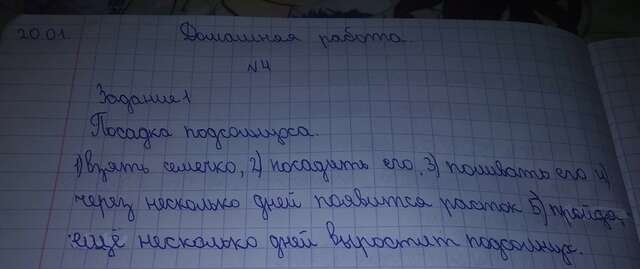 20.01. Домашная работа.
№4
Задание 1
Посадка подсолнуса.
1) взять семечко, 2) посадить его, 3) поливать его 4)
через несколько дней появится расток 5) пройдя,
ещё несколько дней выростит подсолнух.